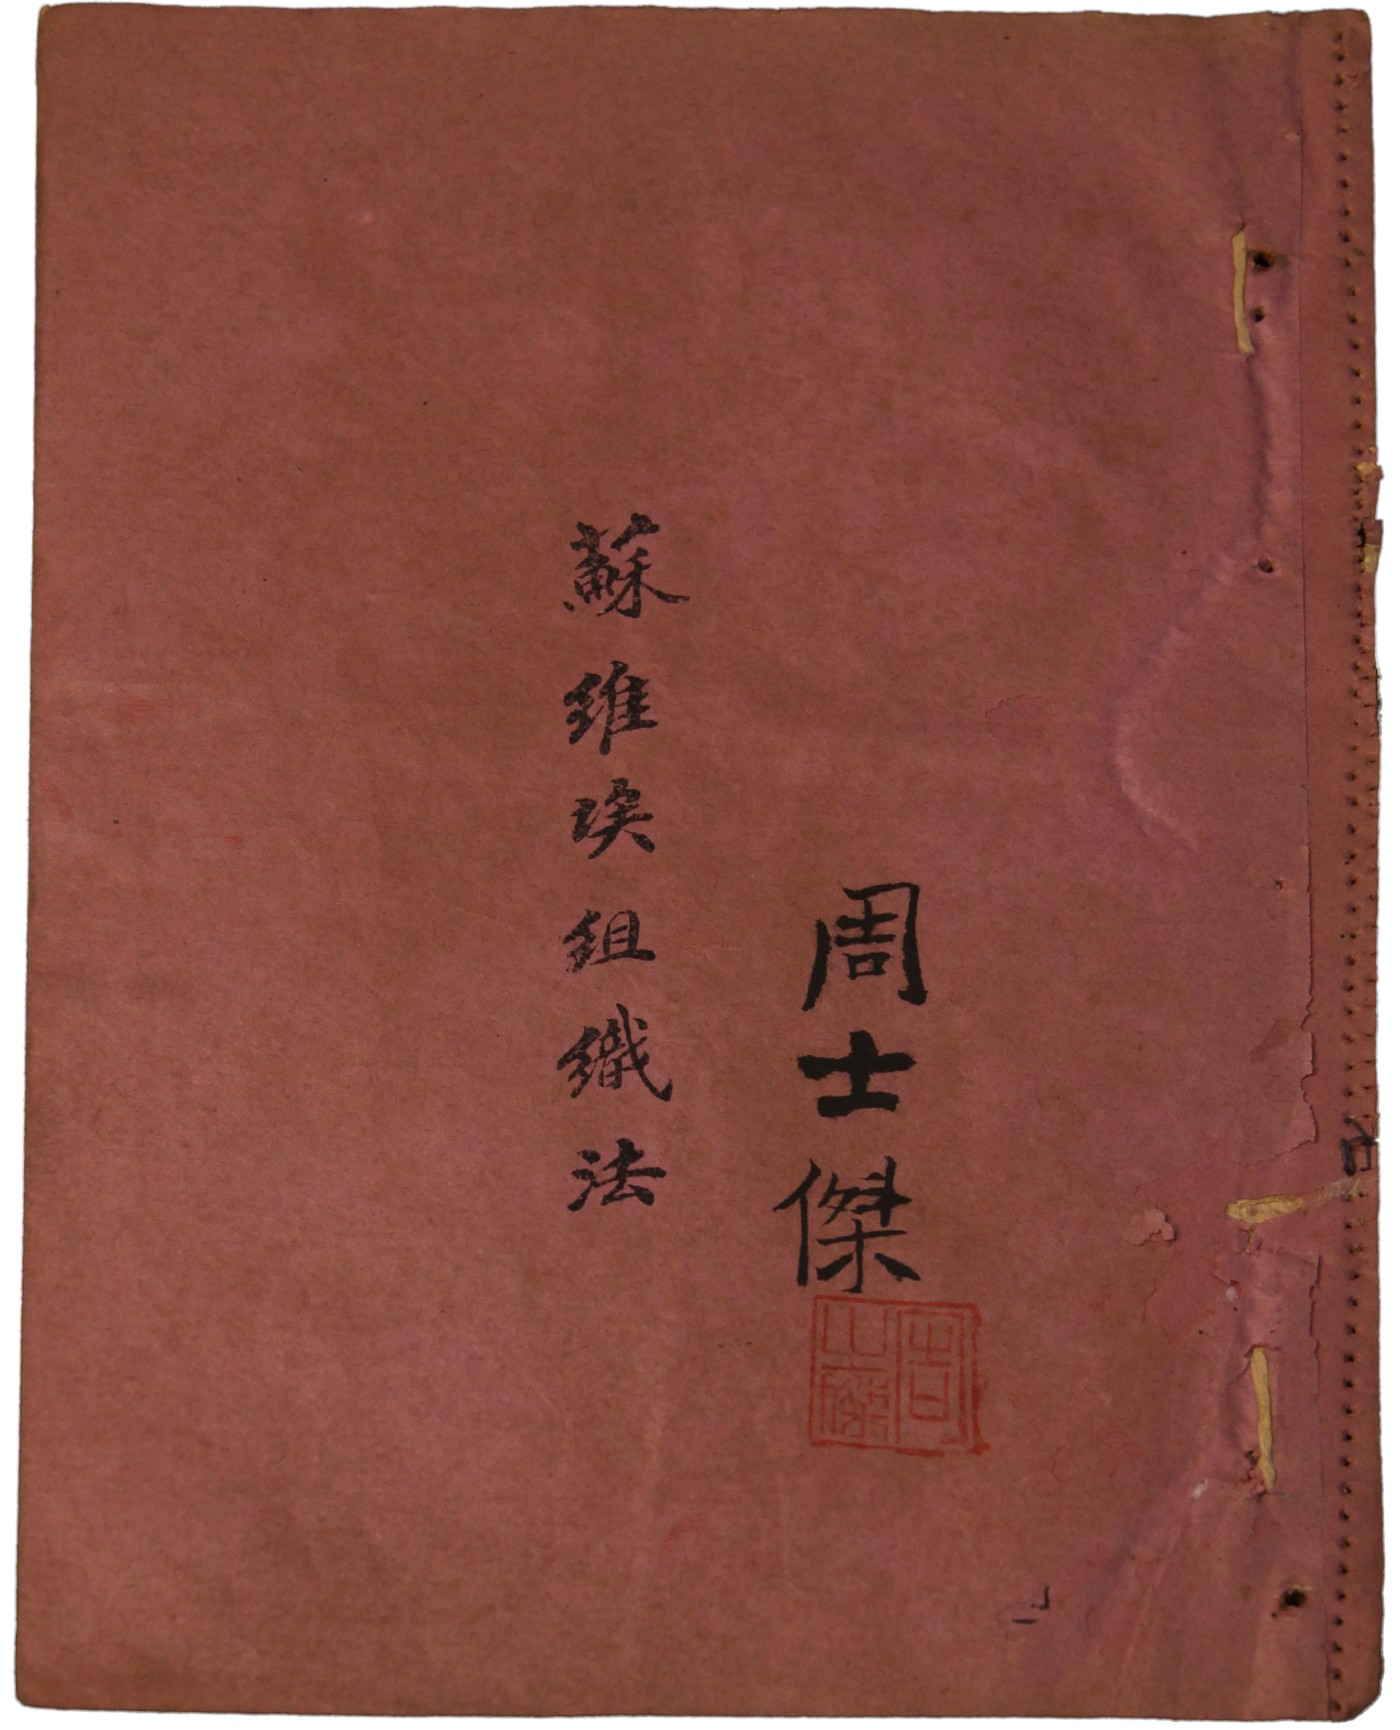 周士傑
周
傑
蘇維埃組織法